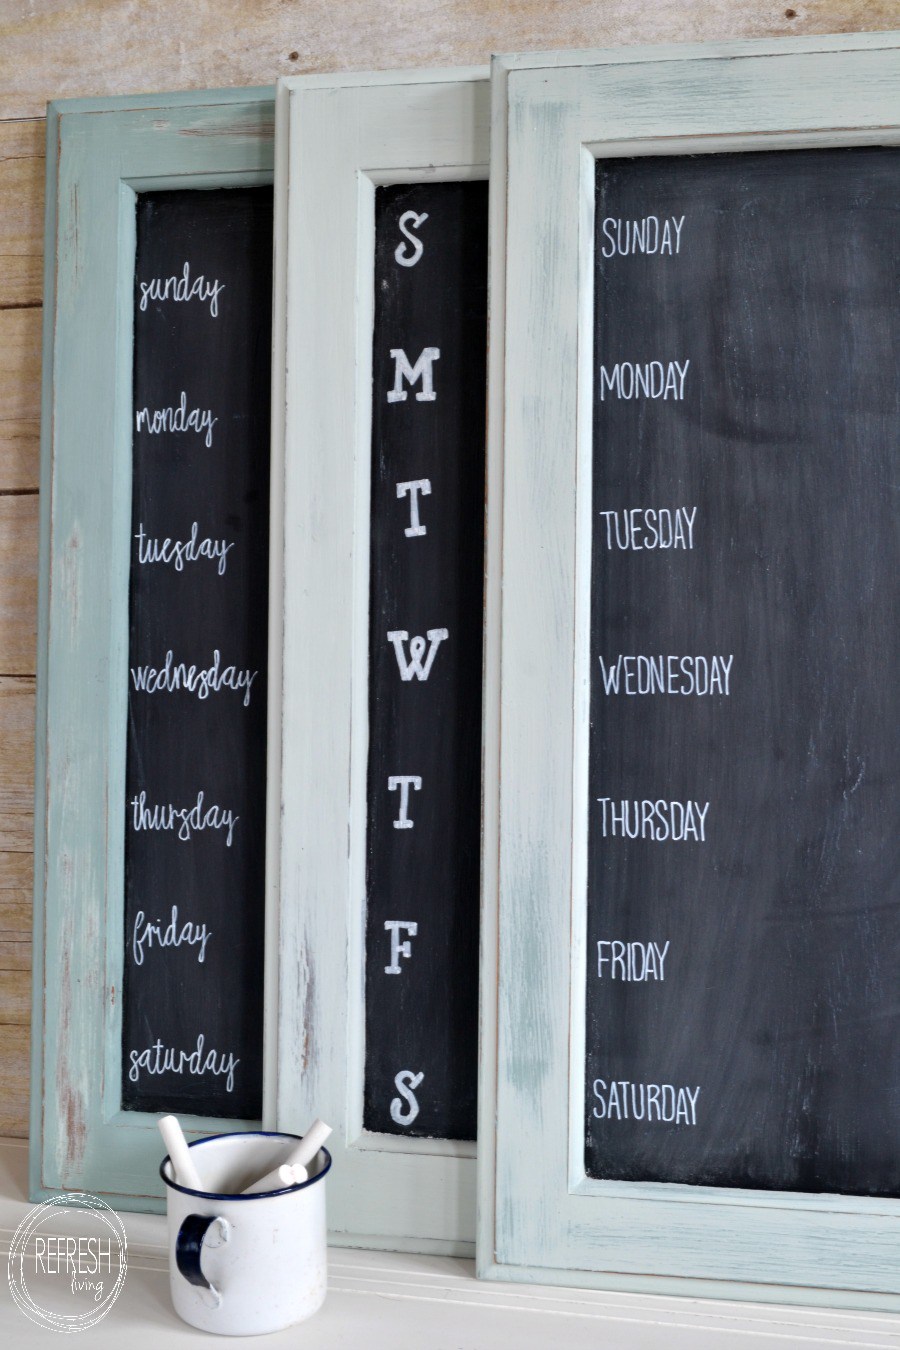 sunday
monday
tuesday
wednesday
thursday
friday
saturday
S
M
T
W
T
F
S
SUNDAY
MONDAY
TUESDAY
WEDNESDAY
THURSDAY
FRIDAY
SATURDAY
REFRESH
living